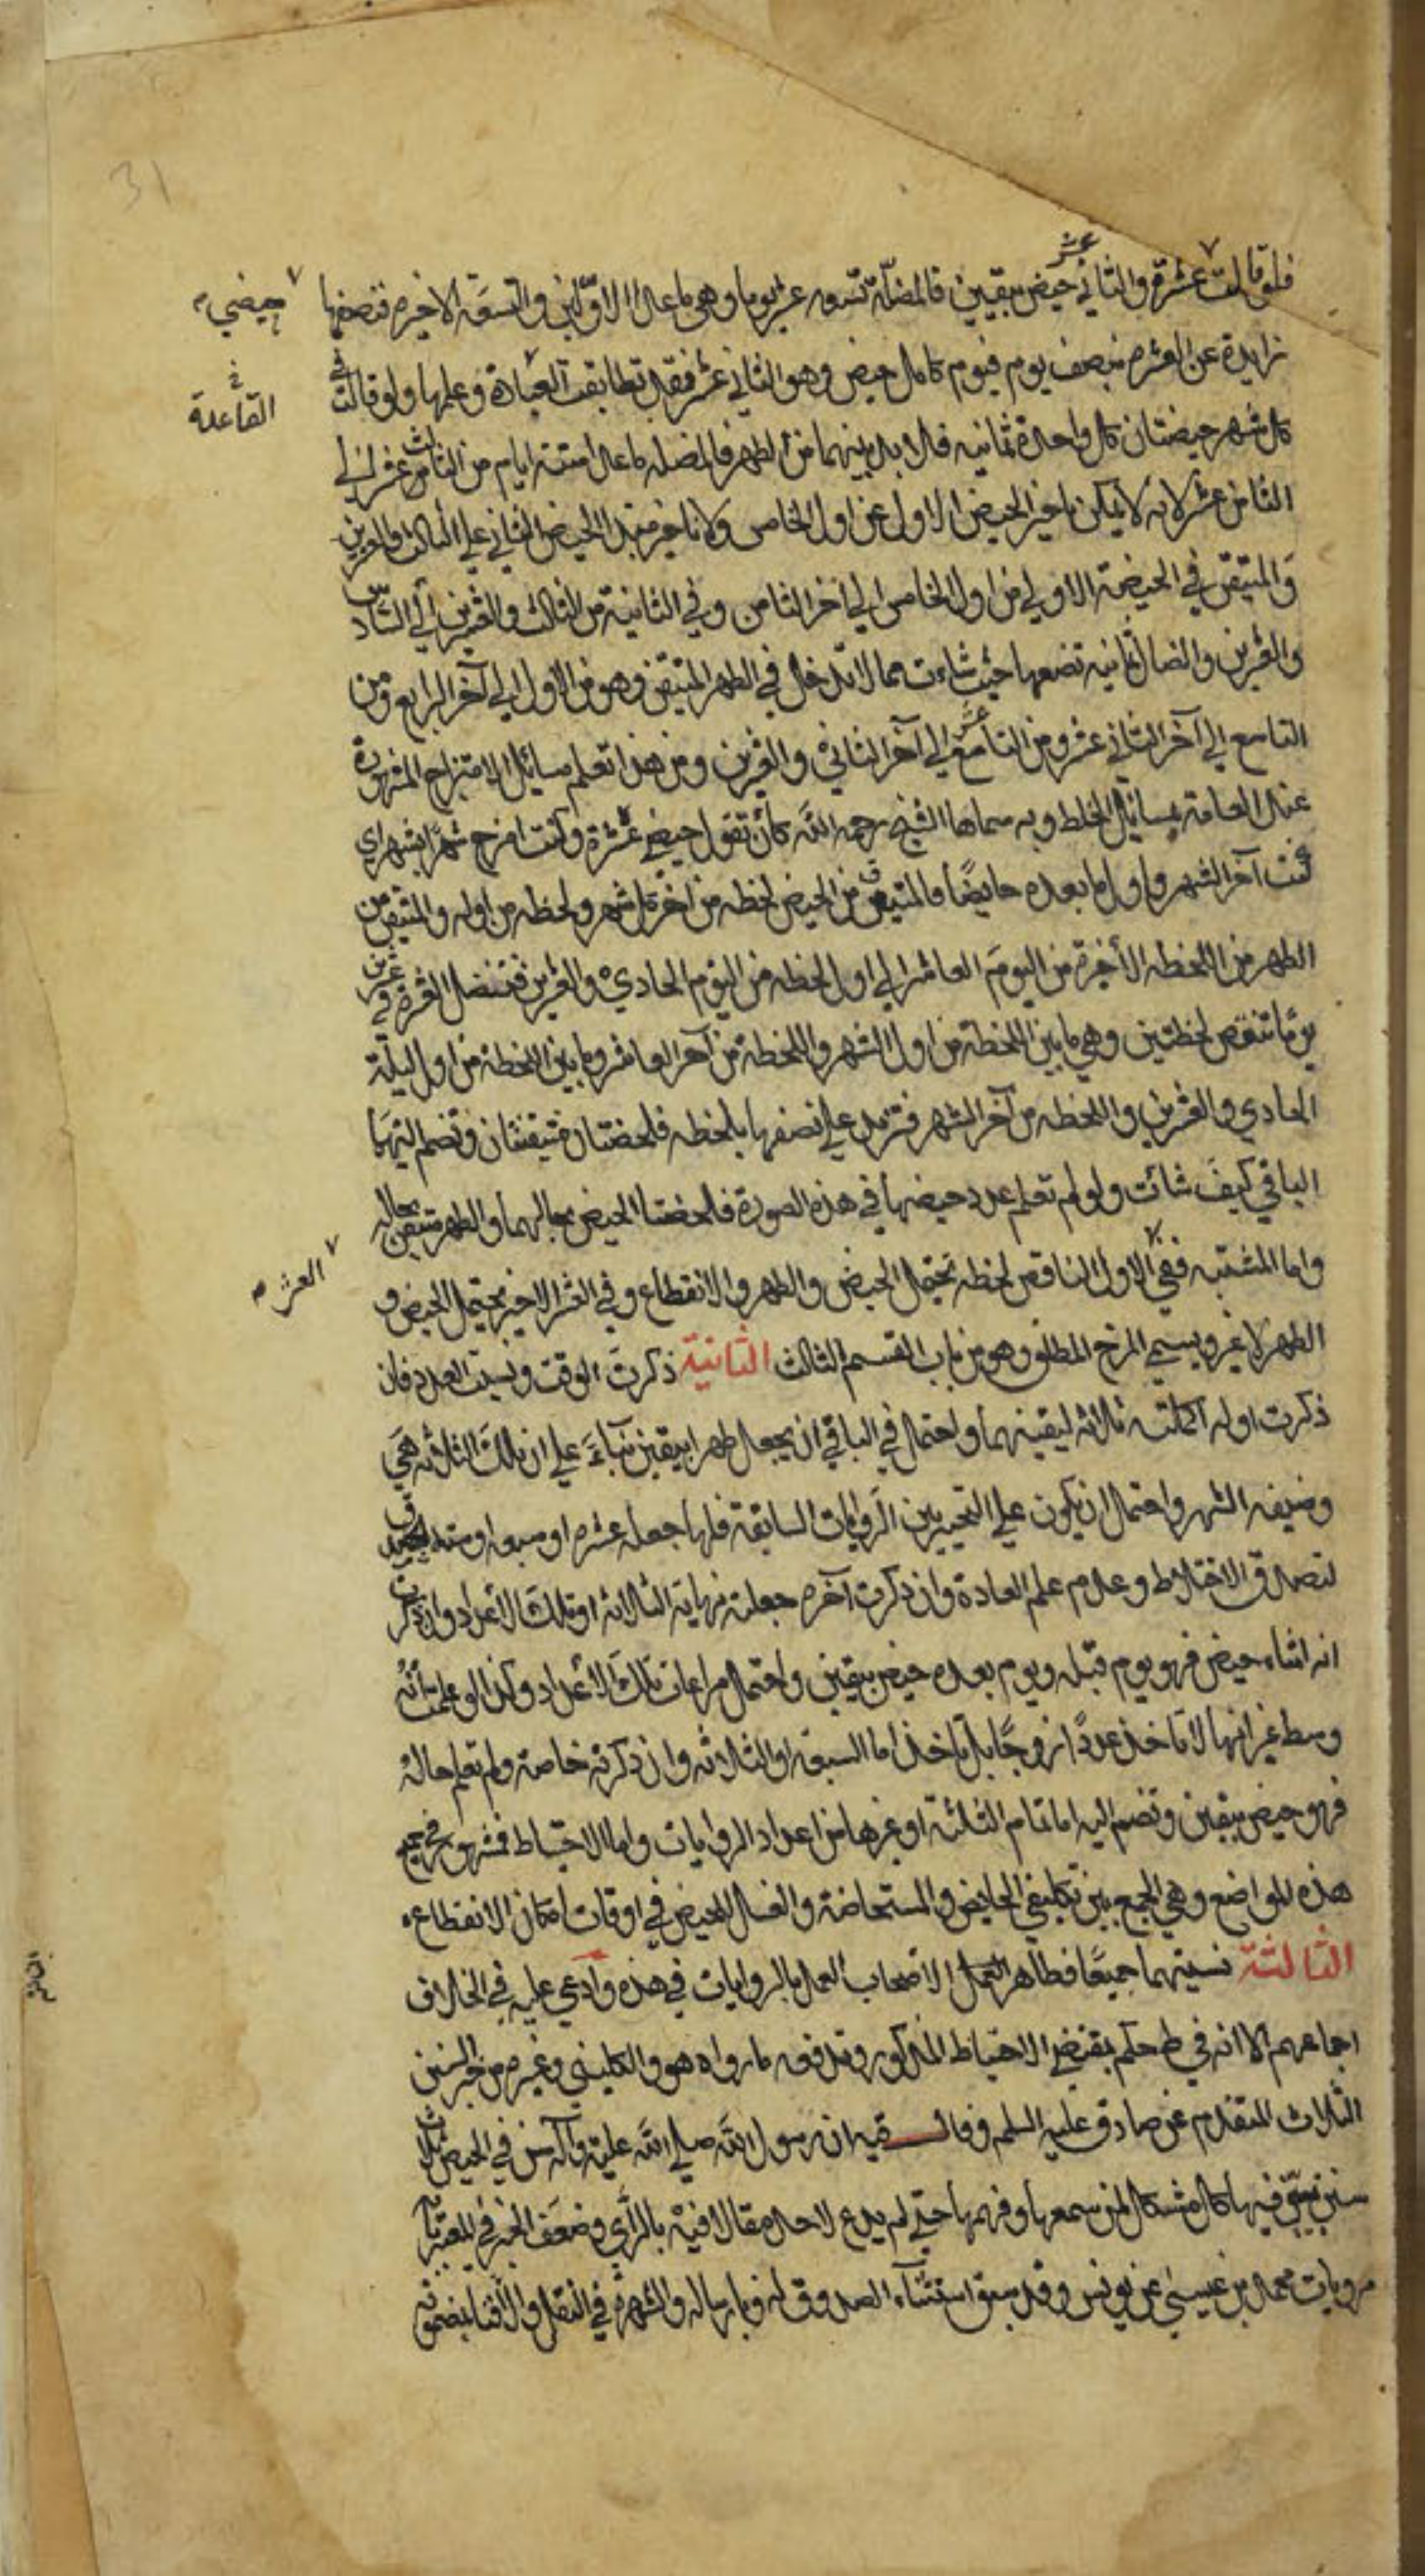 31
فلو قالت عشرة والثاني عشر حيض بيقين فالمضلة تسعة عشر يوما وهي ما عدا الاولين والتسعة الاخيره فنصفها
حيضي
زايدة عن العشره بنصف يوم فيوم كامل حيض وهو الثاني عشر فقد تطابقت العبادة وعلمها ولو قالت في
القاعدة
كل شهر حيضتان كل واحدة ثمانيه فلا بد بينهما من الطهر فالمضله ما عدا ستة ايام من الثالث عشر الي
الثامن عشر لانه لا يمكن تاخير الحيض الاول عن اول الخامس ولا تاخير مبتدا الحيض الثاني علي الثالث والعشرين
والمتيقن في الحيضة الاولي من اول الخامس الي اخر الثامن وفي الثانية من الثالث والعشرين الي السادس
والعشرين والضال ثمانيه تضعها حيث شاءت مما لا تدخل في الطهر المتيقن وهو من الاول الي آخر الرابع ومن
التاسع الي آخر الثاني عشر ومن التاسع عشر الي آخر الثاني والعشرين ومن هذا تعلم مسائل الامتزاج المشهورة
عند العامة بمسائل الخلط وبه سماها الشيخ رحمه الله كأن تقول حيضي عشرة وكنت امزج شهرا بشهر اي
كنت آخر الشهر واول ما بعده حايضًا فالمتيقن من الحيض لحظه من آخر كل شهر ولحظه من اوله والمتيقن من
الطهر من اللحظه الأخرة من اليوم العاشر الي اول لحظه من اليوم الحادي والعشرين فتضل العشرة في عشرين
يومًا تنقص لحظتين وهي ما بين اللحظة من اول الشهر واللحظة من آخر العاشر وما بين اللحظة من اول ليلة
الحادي والعشرين واللحظه من آخر الشهر فتزيد علي نصفها بلحظه فلحضتان متيقنتان وتضم اليهما
الباقي كيف شائت ولو لم تعلم عدد حيضها في هذه الصورة فلحضتا الحيض بحالهما والطهر متيقن بحاله
واما المشتبه ففي الاول الناقص لحظه تحتمل الحيض والطهر والانقطاع وفي العشر الاخير يحتمل الحيض و
العشر
الطهر لا غير ويسمي المزج المطلق وهو من باب القسم الثالث الثانية ذكرت الوقت ونسيت العدد فان
ذكرت اوله اكملته ثلاثه ليقينهما واحتمال في الباقي ان يجعل طهرا بيقين بناءً علي ان تلك الثلاثه هي
وضيفه الشهر واحتمال ان يكون علي التخيير بين الروايات السابقة فلها جعله عشره او سبعه او سته
لتصدق الاختلاط وعدم علم العادة وان ذكرت آخره جعلته نهاية الثلاثه او تلك الاعداد وان ذكرت
انه اثناء حيض فهو يوم قبله ويوم بعده حيض بيقين واحتمل مراعات تلك الأعداد وكذا لو علمت أنه
وسط غير انها لا تاخذ عددًا زوجًا بل تاخذ اما السبعة او الثلاثه وان ذكرته خاصة ولم تعلم حاله
فهو حيض بيقين وتضم اليه اما تمام الثلثة او غيرها من اعداد الروايات واما الاحتياط فمشهور في جميع
هذه المواضع وهي الجمع بين تكليفي الحايض والمستحاضة والغسل للحيض في اوقات امكان الانقطاع
الثالثة نسيتهما جميعًا فظاهر الاصحاب العمل بالروايات في هذه وادعي عليه في الخلاف
اجماعهم الا انه في ط حكم بمقتضي الاحتياط المذكور وتدفعه ما رواه هو والكليني وغيره من خبر السنن
الثلاث المتقدم عن صادق عليه السلم وقال فيه ان رسول الله صلي الله عليه وآله سن في الحيض ثلاث
سنن بيّن فيها كل مشكل لمن سمعها وفهمها حتي لم يدع لاحد مقالا فيه بالرأي وضعف الخبر في المعتبر بأنه
مرويات محمد بن عيسي عن يونس وقد سبق استثناء الصدوق له وبارساله والشهره في النقل والافتا بمضمونه